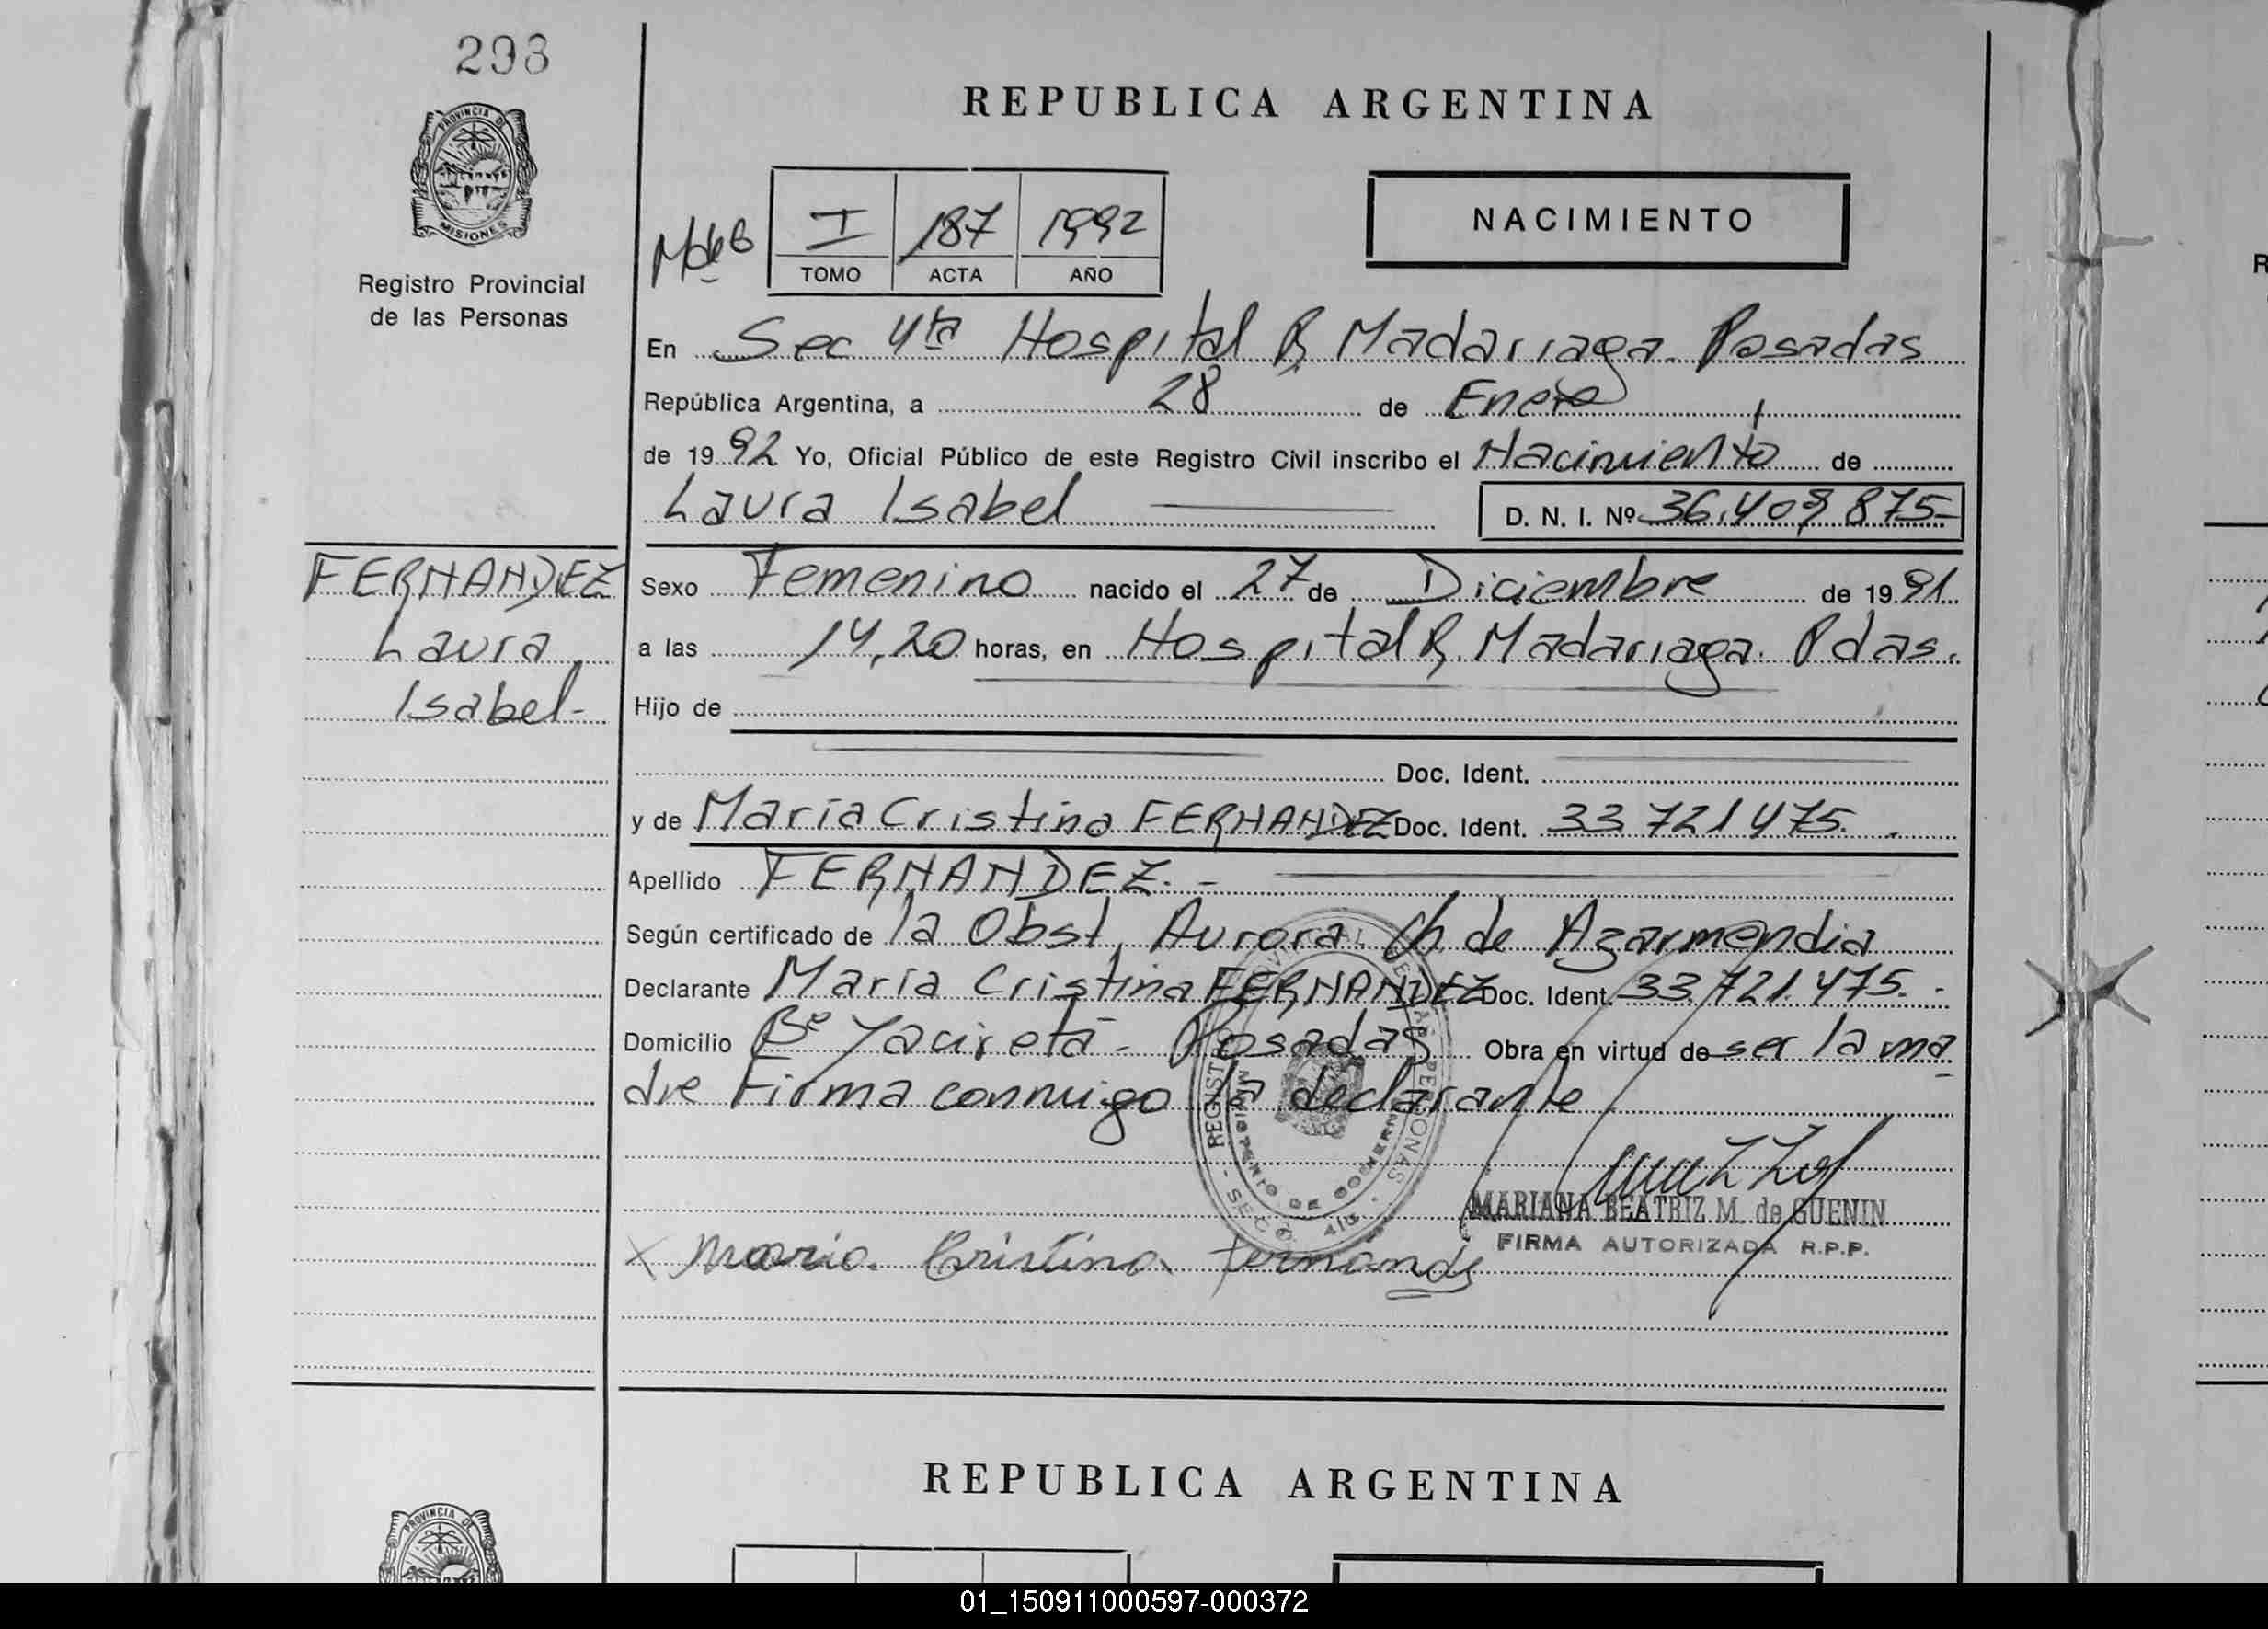 298
PROVINCIA DE
MISIONES
Registro Provincial
de las Personas
REPUBLICA ARGENTINA
I 187 1992
TOMO ACTA AÑO
NACIMIENTO
En Sec 4ta Hospital R. Madariaga. Posadas
República Argentina, a 28 de Enero
de 1992 Yo, Oficial Público de este Registro Civil inscribo el Nacimiento de
Laura Isabel D. N. I. Nº 36.409 875-
FERNANDEZ
Laura
Isabel-
Sexo Femenino nacido el 27 de Diciembre de 1991
a las 14,20 horas, en Hospital R. Madariaga. Pdas.
Hijo de
Doc. Ident.
y de María Cristina FERNANDEZ Doc. Ident. 33 721 475.
Apellido FERNANDEZ.-
Según certificado de la Obst, Aurora Ch de Azarmendia
Declarante María Cristina FERNANDEZ Doc. Ident. 33.721.475.-
Domicilio Bº Yacireta- Posadas Obra en virtud de ser la ma
dre Firma conmigo la declarante
MARIANA BEATRIZ M. de GUENIN
FIRMA AUTORIZADA R.P.P.
x Maria Cristina fernandez
REPUBLICA ARGENTINA
PROVINCIA DE
01_150911000597-000372